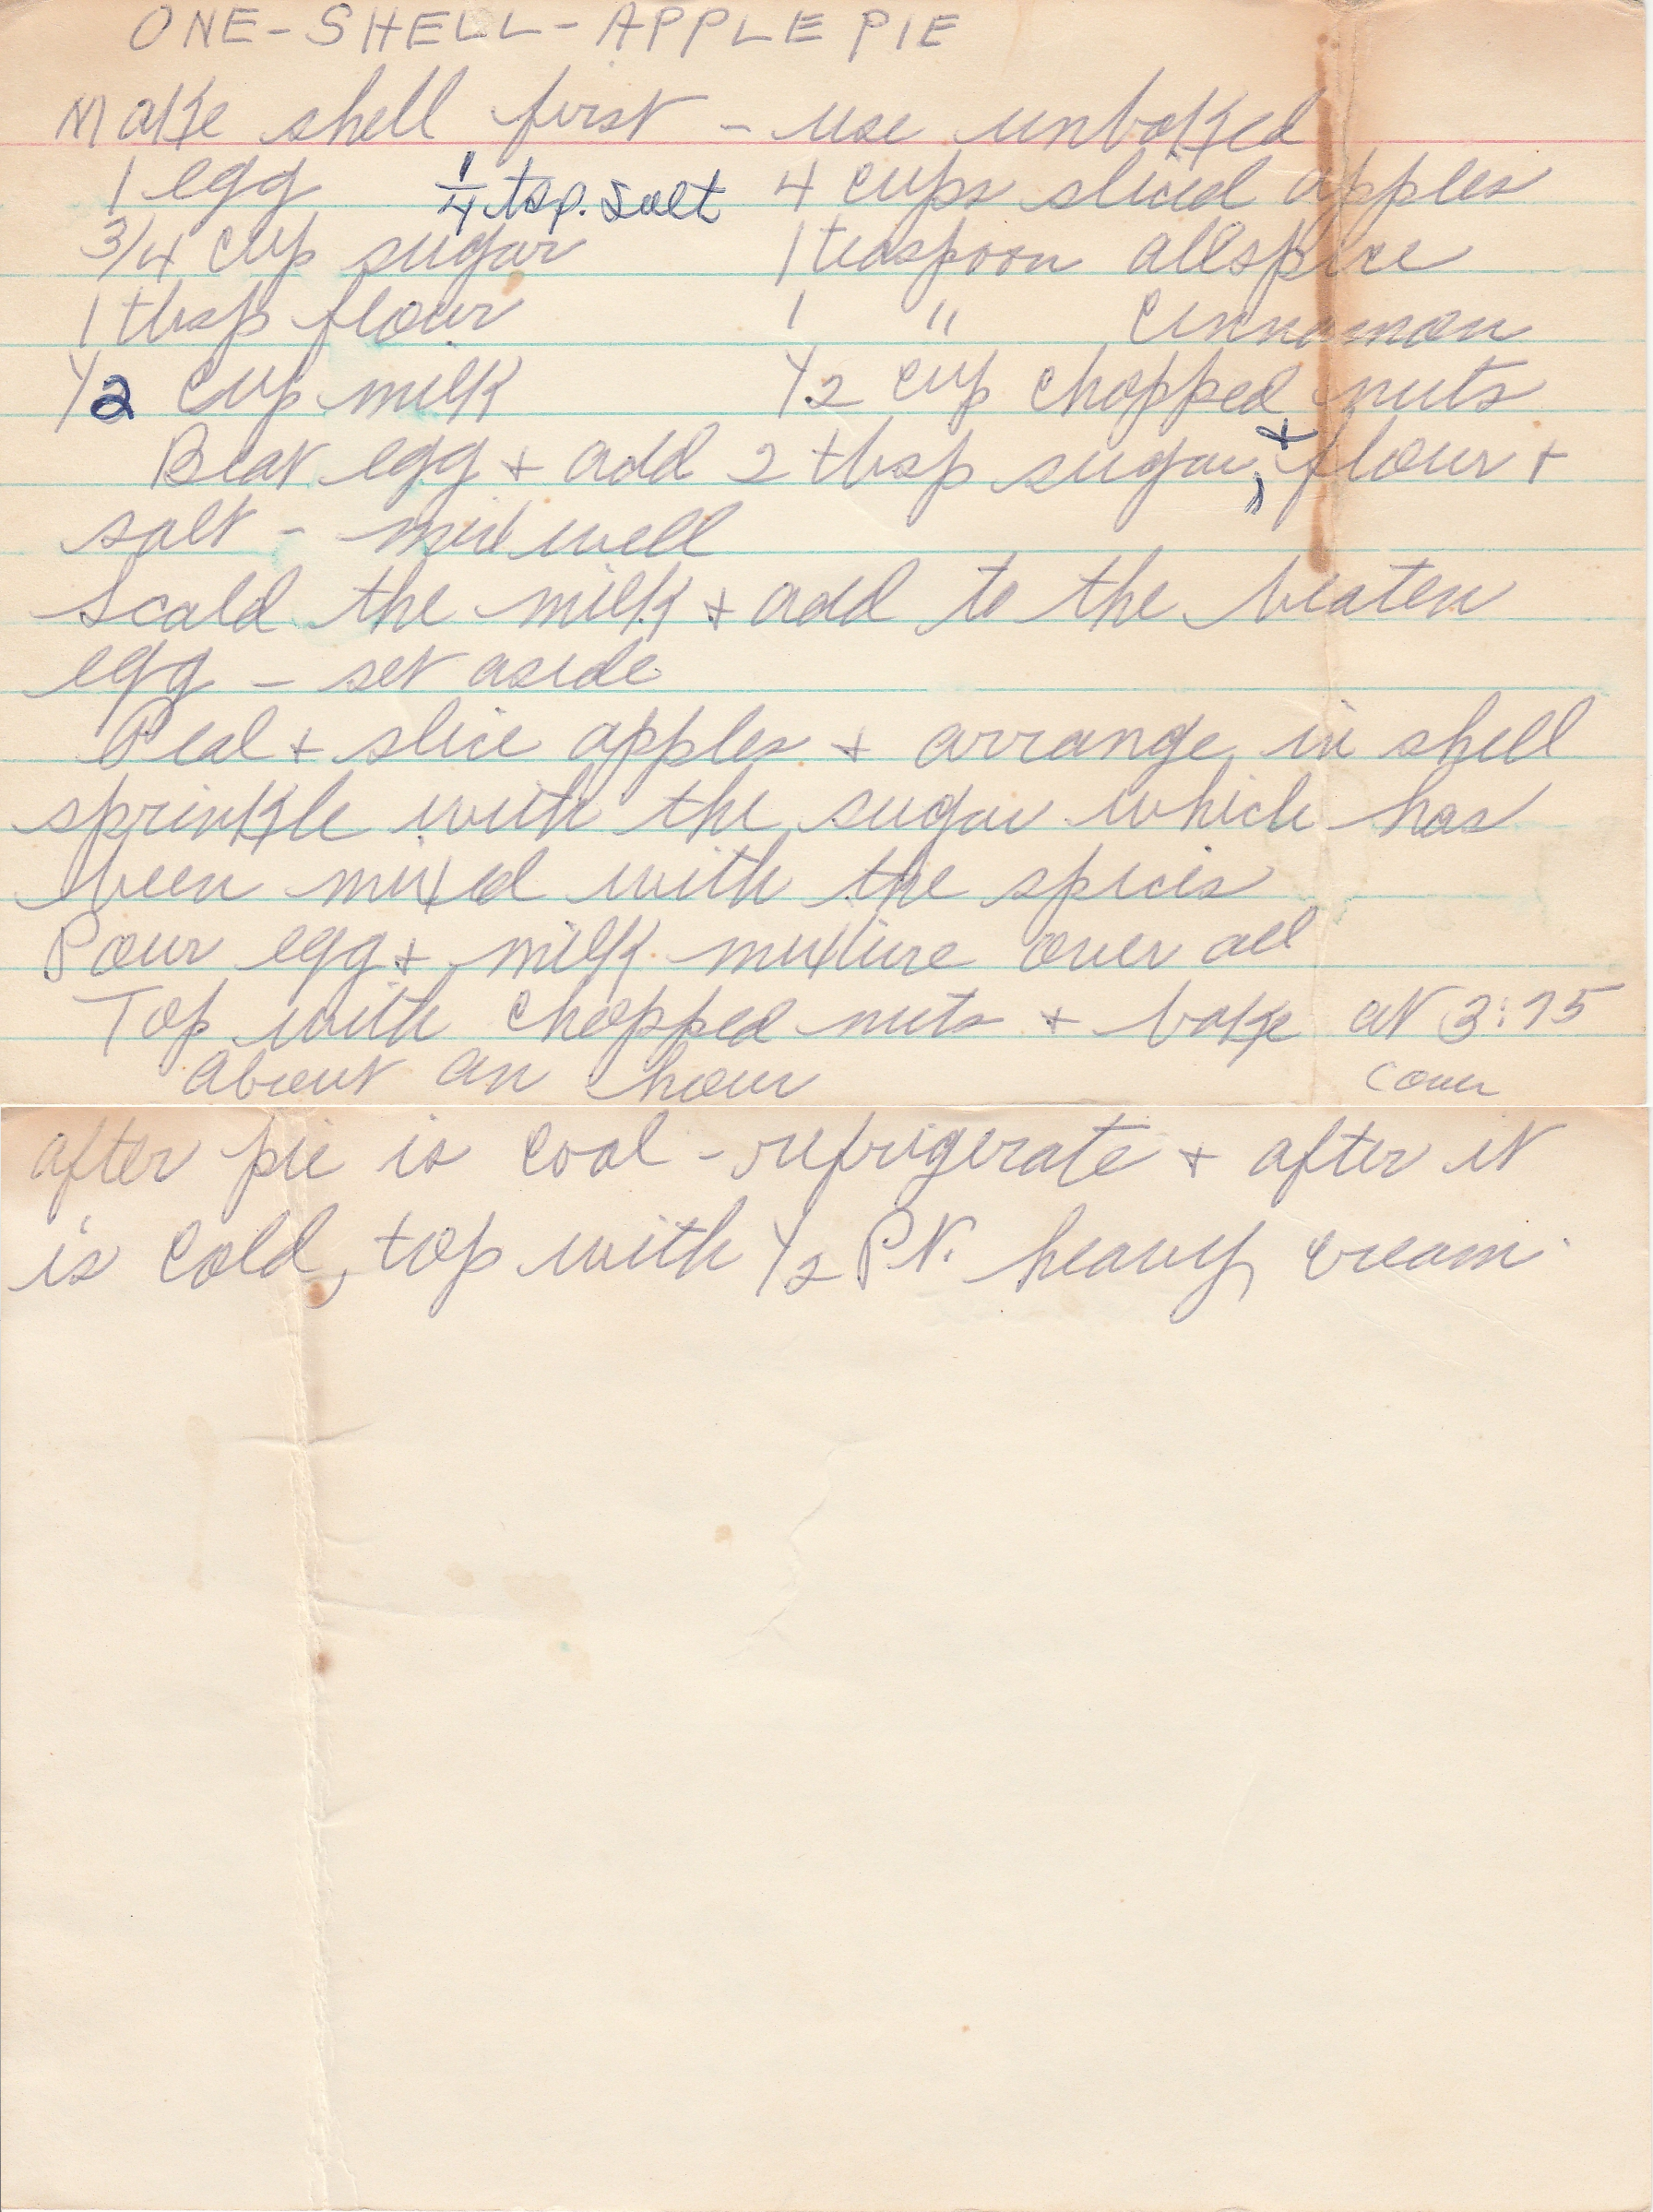 ONE-SHELL-APPLE PIE
Make shell first - use unbaked
1 egg 1/4 tsp. salt 4 cups sliced apples
3/4 cup sugar 1 teaspoon allspice
1 tbsp flour 1 " cinnamon
1/2 cup milk 1/2 cup chopped nuts
Beat egg + add 2 tbsp sugar, + flour +
salt - mix well
Scald the milk + add to the beaten
egg - set aside
Peal + slice apples + arrange in shell
sprinkle with the sugar which has
been mixed with the spices
Pour egg + milk mixture over all
Top with chopped nuts + bake at 3:75
about an hour cover
after pie is cool - refrigerate + after it
is cold, top with 1/2 Pt. heavy cream.